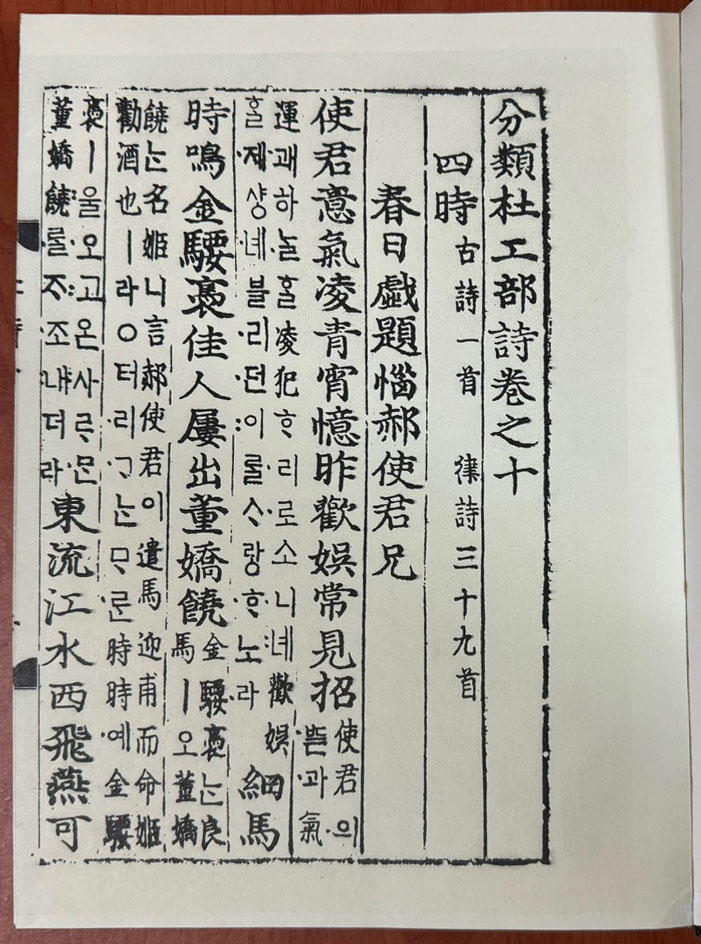 分類杜工部詩卷之十
四時 古詩一首 律詩三十九首
春日戱題惱郝使君兄
使君意氣凌青宵憶昨歡娛常見招
使君의
ᄠᅳᆮ과氣
運괘하ᄂᆞᆯᄒᆞᆯ凌犯ᄒᆞ리로소니녜歡娛
ᄒᆞᆯ제샹녜블리던이ᄅᆞᆯᄉᆞ랑ᄒᆞ노라
細馬
時鳴金騕褭佳人屢出董嬌饒
金騕褭ᄂᆞᆫ良
馬ㅣ오董嬌
饒ᄂᆞᆫ名姬니言郝使君이遣馬迎甫而命姬
勸酒也ㅣ라○터리ᄀᆞᄂᆞᆫᄆᆞᄅᆞᆫ時時예金騕
褭ㅣ울오고온사ᄅᆞᄆᆞᆫ
董嬌饒ᄅᆞᆯᄌᆞ조내더라
東流江水西飛燕可